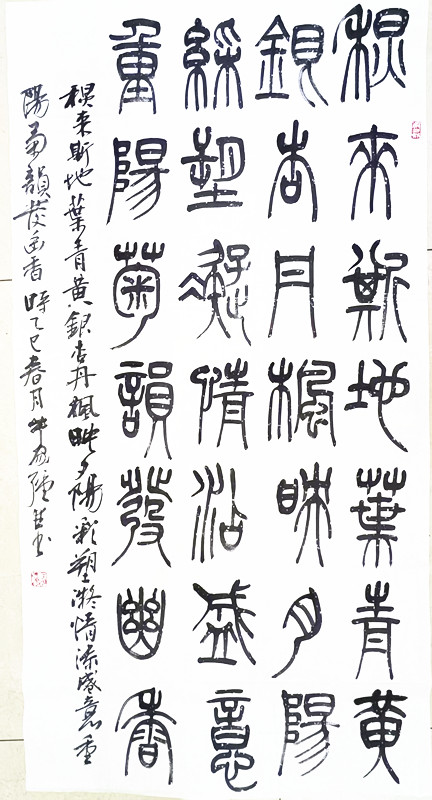 來斯地葉青黃
銀杏丹楓映夕陽
綵塑凝情添盛意
重陽菊韻發幽香
来斯地葉青黄銀杏丹楓映夕陽彩塑凝情添盛意重
陽菊韻發幽香時乙巳春月書